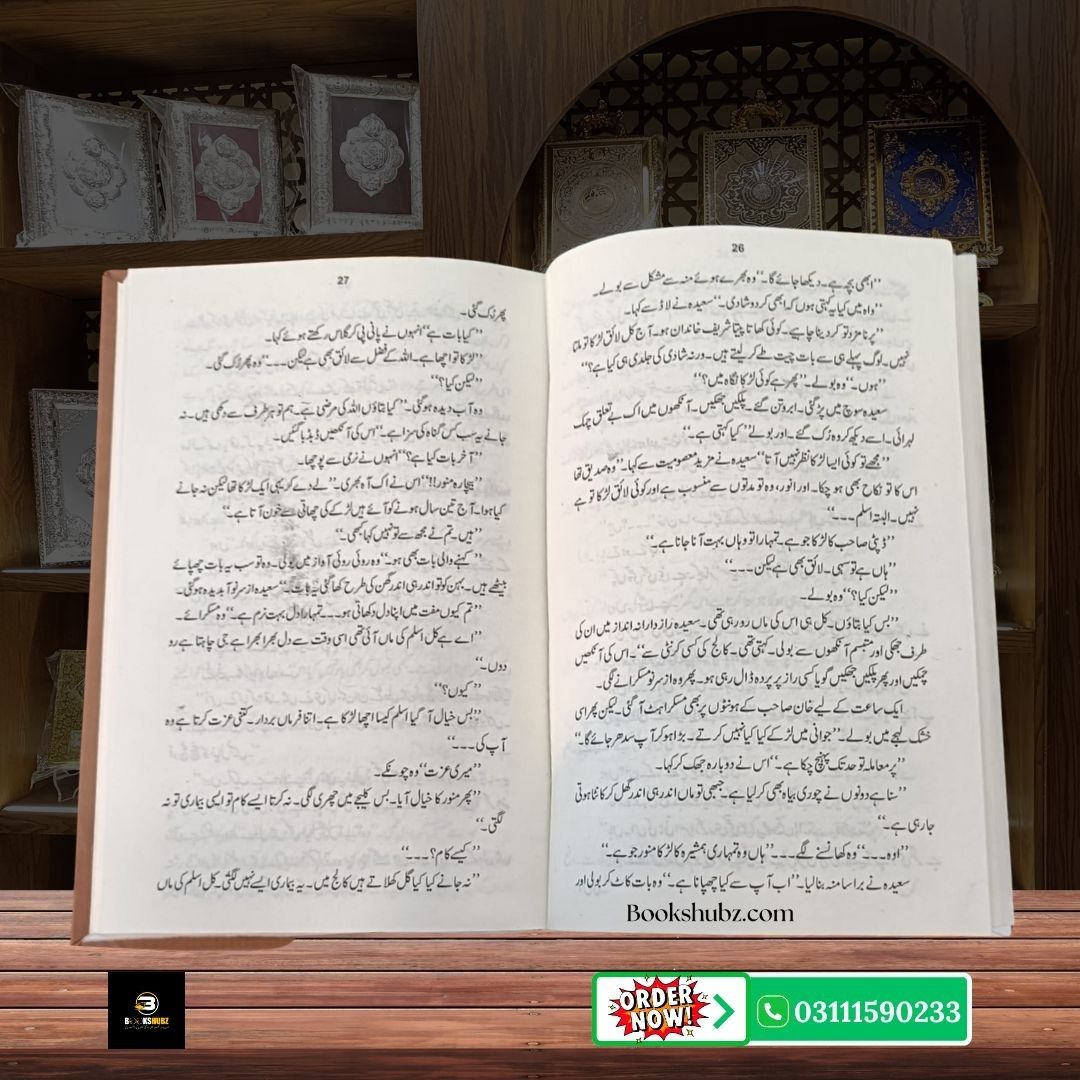 26
”ابھی بچہ ہے۔ دیکھا جائے گا۔“ وہ بھرے ہوئے منہ سے مشکل سے بولے۔
”واہ میں کیا یہ کہتی ہوں کہ ابھی کر دو شادی۔“ سعیدہ نے لاڈ سے کہا۔
”پر نامزد تو کر دینا چاہیے۔ کوئی کھاتا پیتا شریف خاندان ہو۔ آج کل لائق لڑکا تو ملتا
نہیں۔ لوگ پہلے ہی سے بات چیت طے کر لیتے ہیں۔ ورنہ شادی کی جلدی ہی کیا ہے؟“
”ہوں۔“ وہ بولے۔ ”پھر ہے کوئی لڑکا نگاہ میں؟“
سعیدہ سوچ میں پڑ گئی۔ ابرو تن گئے۔ پلکیں جھکیں۔ آنکھوں میں اک بے تعلق چمک
لہرائی۔ اسے دیکھ کر وہ رُک گئے۔ اور بولے ”کیا کہتی ہے۔“
”مجھے تو کوئی ایسا لڑکا نظر نہیں آتا“ سعیدہ نے مزید معصومیت سے کہا۔ ”وہ صدیق تھا
اس کا تو نکاح بھی ہو چکا۔ اور انور، وہ تو مدتوں سے منسوب ہے اور کوئی لائق لڑکا تو ہے
نہیں۔ البتہ اسلم۔۔۔“
”ڈپٹی صاحب کا لڑکا جو ہے۔ تمہارا تو وہاں بہت آنا جانا ہے۔“
”ہاں ہے تو سہی۔ لائق بھی ہے لیکن۔۔۔“
”لیکن کیا؟“ وہ بولے۔
”بس کیا بتاؤں۔ کل ہی اس کی ماں رو رہی تھی۔ سعیدہ رازدارانہ انداز میں ان کی
طرف جھکی اور متبسم آنکھوں سے بولی۔ کہتی تھی۔ کالج کی کسی کرنٹی سے“۔ اس کی آنکھیں
چمکیں اور پھر پلکیں جھکیں گویا کسی راز پر پردہ ڈال رہی ہو۔ پھر وہ از سر نو مسکرانے لگی۔
ایک ساعت کے لیے خان صاحب کے ہونٹوں پر بھی مسکراہٹ آ گئی۔ لیکن پھر اسی
خشک لہجے میں بولے۔ ”جوانی میں لڑکے کیا کیا نہیں کرتے۔ بڑا ہو کر آپ سدھر جائے گا۔“
”پر معاملہ تو حد تک پہنچ چکا ہے۔“ اس نے دوبارہ جھک کر کہا۔
”سنا ہے دونوں نے چوری بیاہ بھی کر لیا ہے۔ جبھی تو ماں اندر ہی اندر گھل کر کانٹا ہوتی
جا رہی ہے۔“
”اوہ۔۔۔“ وہ کھانسنے لگے۔۔۔ ”ہاں وہ تمہاری ہمشیرہ کا لڑکا منور جو ہے۔“
سعیدہ نے برا سا منہ بنا لیا۔ ”اب آپ سے کیا چھپانا ہے۔“ وہ بات کاٹ کر بولی اور
27
پھر رُک گئی۔
”کیا بات ہے“ انہوں نے پانی پی کر گلاس رکھتے ہوئے کہا۔
”لڑکا تو اچھا ہے۔ اللہ کے فضل سے لائق بھی ہے لیکن۔۔۔“ وہ پھر رُک گئی۔
”لیکن کیا؟“
وہ آب دیدہ ہو گئی۔ ”کیا بتاؤں اللہ کی مرضی ہے۔ ہم تو ہر طرف سے دکھی ہیں۔ نہ
جانے یہ سب کس گناہ کی سزا ہے۔“ اس کی آنکھیں ڈبڈبا گئیں۔
”آخر بات کیا ہے؟“ انہوں نے نرمی سے پوچھا۔
”بیچارہ منور!!“ اس نے اک آہ بھری۔ ”لے دے کر یہی ایک لڑکا تھا لیکن نہ جانے
کیا ہوا۔ آج تین سال ہونے کو آئے ہیں لڑکے کی چھاتی سے خون آتا ہے۔“
”ہیں۔ تم نے مجھ سے تو نہیں کہا کبھی۔“
”کہنے والی بات بھی ہو۔“ وہ روئی روئی آواز میں بولی۔ وہ تو سب یہ بات چھپائے
بیٹھے ہیں۔ بہن کو تو اندر ہی اندر گھن کی طرح کھا گئی یہ بات۔“ سعیدہ از سر نو آبدیدہ ہو گئی۔
”تم کیوں مفت میں اپنا دل دکھاتی ہو۔۔۔ تمہارا دل بہت نرم ہے۔“ وہ مسکرائے۔
”اے ہے کل اسلم کی ماں آئی تھی اسی وقت سے دل بھرا بھرا ہے جی چاہتا ہے رو
دوں۔“
”کیوں؟“
”بس خیال آ گیا اسلم کیسا اچھا لڑکا ہے۔ اتنا فرماں بردار۔ کتنی عزت کرتا ہے وہ
آپ کی۔۔۔“
”میری عزت“ وہ چونکے۔
”پھر منور کا خیال آیا۔ بس کلیجے میں چھری لگی۔ نہ کرتا ایسے کام تو ایسی بیماری تو نہ
لگتی۔“
”کیسے کام؟۔۔۔“
”نہ جانے کیا کیا گل کھلاتے ہیں کالج میں۔ یہ بیماری ایسے نہیں لگتی۔ کل اسلم کی ماں
Bookshubz.com
BOOKSHUBZ
ORDER NOW!
03111590233